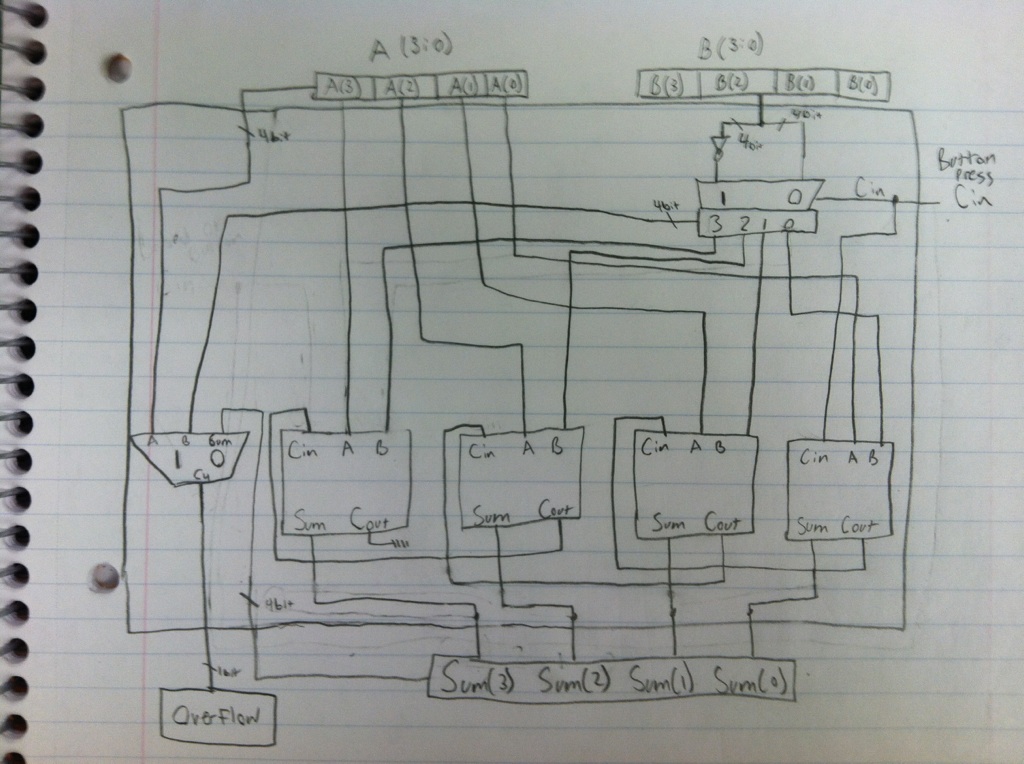 A (3:0)
B (3:0)
A(3) A(2) A(1) A(0)
B(3) B(2) B(1) B(0)
4bit
4bit
4bit
Button
press
Cin
Cin
1 0
4bit
3 2 1 0
A B Sum
1 0
C4
Cin A B
Sum Cout
Cin A B
Sum Cout
Cin A B
Sum Cout
Cin A B
Sum Cout
4bit
1bit
Sum(3) Sum(2) Sum(1) Sum(0)
Overflow